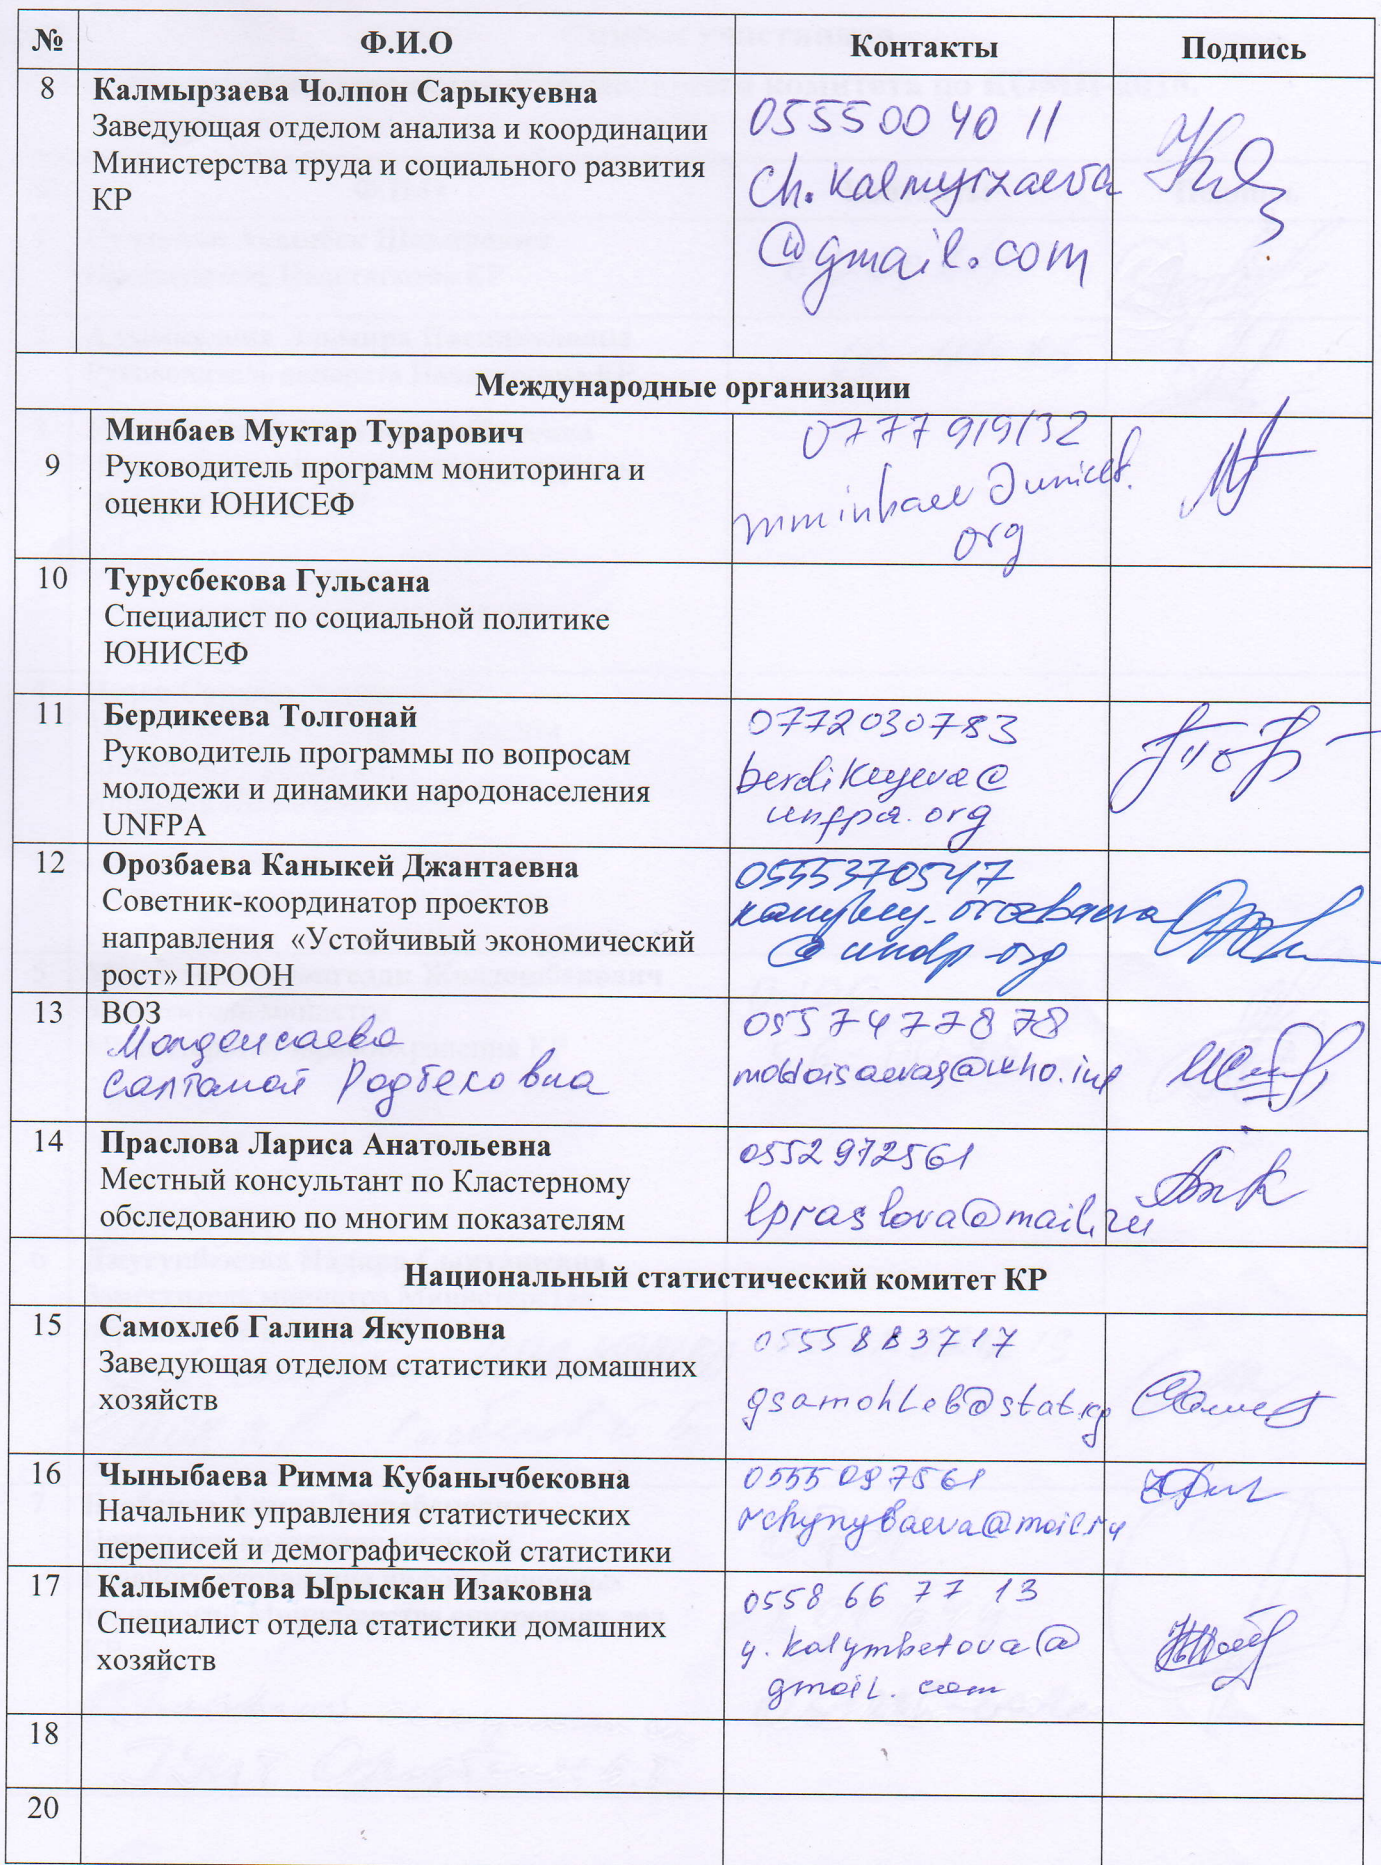 № Ф.И.О Контакты Подпись
8 Калмырзаева Чолпон Сарыкуевна
Заведующая отделом анализа и координации
Министерства труда и социального развития
КР
0555004011
ch.kalmyrzaeva
@gmail.com
Международные организации
9 Минбаев Муктар Турарович
Руководитель программ мониторинга и
оценки ЮНИСЕФ
0777919132
mminbaev@unicef.
org
10 Турусбекова Гульсана
Специалист по социальной политике
ЮНИСЕФ
11 Бердикеева Толгонай
Руководитель программы по вопросам
молодежи и динамики народонаселения
UNFPA
0772030783
berdikeyeva@
unfpa.org
12 Орозбаева Каныкей Джантаевна
Советник-координатор проектов
направления «Устойчивый экономический
рост» ПРООН
0555370547
@undp.org
13 ВОЗ
Молдоисаева
Салтанат
0557477878
moldoisaevas@who.int
14 Праслова Лариса Анатольевна
Местный консультант по Кластерному
обследованию по многим показателям
0552972561
lpraslova@mail.ru
Национальный статистический комитет КР
15 Самохлеб Галина Якуповна
Заведующая отделом статистики домашних
хозяйств
0555883717
gsamohleb@stat.kg
16 Чыныбаева Римма Кубанычбековна
Начальник управления статистических
переписей и демографической статистики
0555097561
rchynybaeva@mail.ru
17 Калымбетова Ырыскан Изаковна
Специалист отдела статистики домашних
хозяйств
0558 66 77 13
y.kalymbetova@
gmail.com
18
20